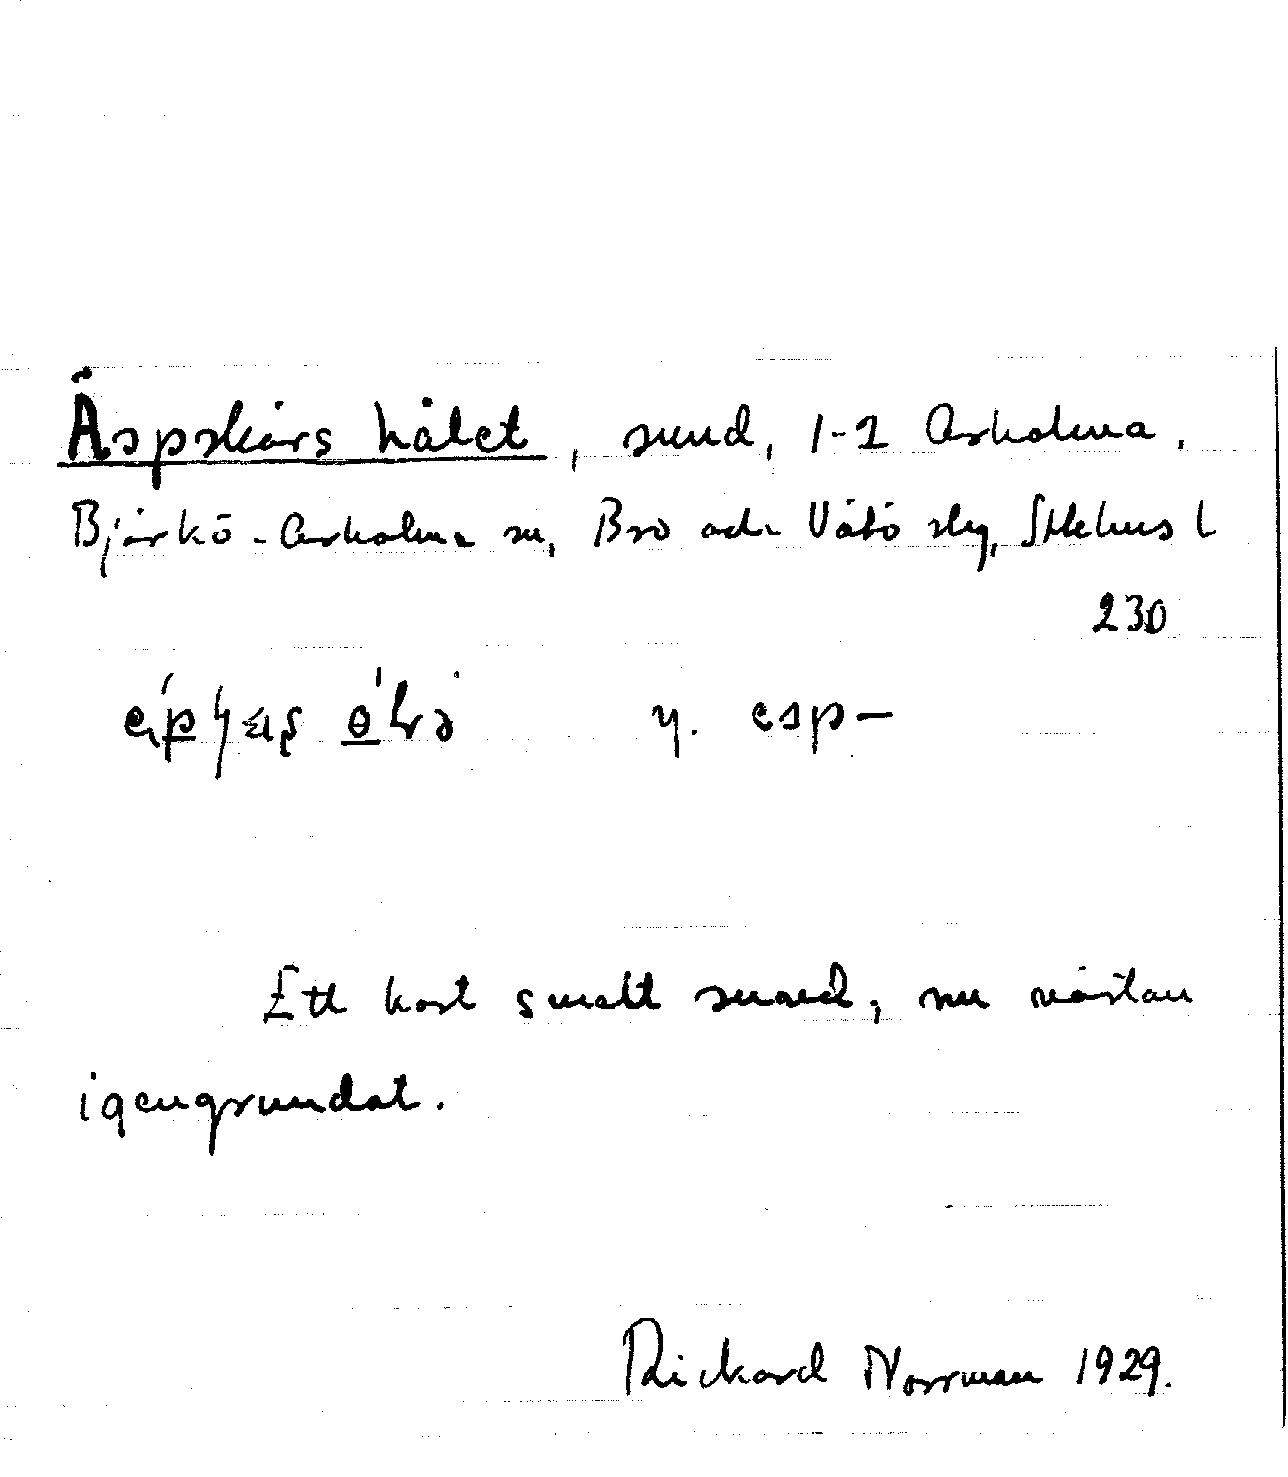 Äspskärs hålet, sund, 1-2 Arholma,
Björkö-Arholma sn, Bro och Vätö slg, Sthlms l
230
y. esp-
Ett kort smalt sund, nu nästan
igengrundat.
Rickard Norrman 1929.